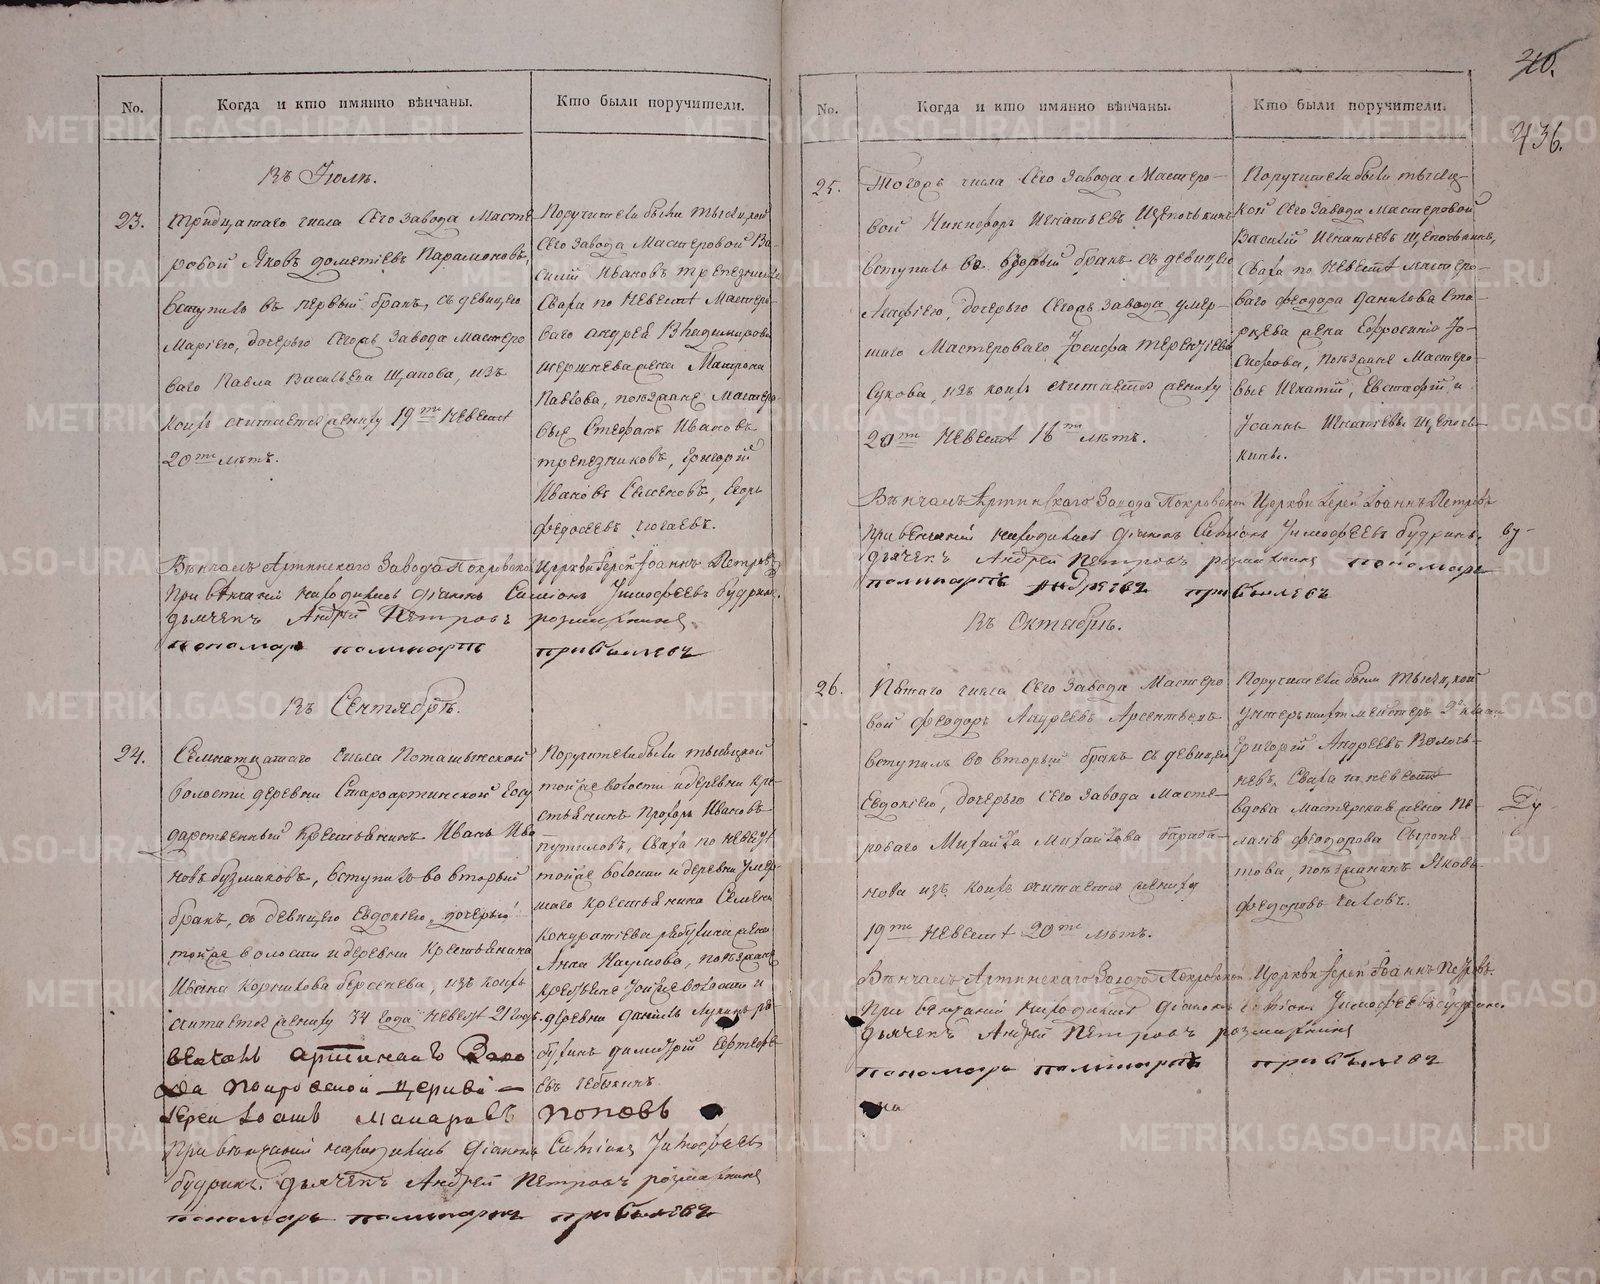 No.
Когда и кто имянно вѣнчаны.
Кто были поручители.
Въ Іюлѣ.
23.
Тридцатаго числа Сего Завода Масте
ровой Яковъ Дометіевъ Парамоновъ,
вступилъ въ первый бракъ, съ девицею
Маріею, дочерью Сегожъ Завода Мастеро
ваго Павла Васильева Щапова, изъ
коихъ считается жениху 19ть невест
20ть лѣтъ.
Поручители были тысяцкой
Сего Завода Мастеровой Ва-
силій Ивановъ Трепезников
Сваха по Невесте Мастеро-
ваго Андрея Владимирова
жена Матрона
Павлова, поезжане Мастеро
вые Стефанъ Ивановъ
трепезниковъ, Григорій
Ивановъ Семеновъ, Егоръ
Федосеевъ
Вѣнчалъ Артинскаго Завода Покровской Церкви Іерей Іоаннъ Петровъ
При венчаніи находились Діаконъ Симіонъ Тимофеевъ Будринъ.
дьячекъ Андрей Петровъ
пономарь прибылевъ
Въ Сентябрѣ.
24.
Семнатцатаго числа Поташинской
волости деревни Староартинской Госу
дарственный Крестьянинъ Иванъ Ива
новъ бузмаковъ, вступилъ во вторый
бракъ, съ девицею Евдокіею, дочерью
тойже волости и деревни Крестьянина
Ивана Корнилова берсенева, изъ коихъ
считается жениху 34 года невест 21 годъ.
Поручители были тысяцкой
тойже волости и деревни кре-
стьянинъ Прохоръ Ивановъ
путиловъ, Сваха по невест
тойже волости и деревни умер-
шаго крестьянина Семена
Кондратіева рябухина жена
Анна Наумова, поезжане
крестьяне тойже волости и
деревни Данилъ Лукинъ ря-
бухинъ димитрій
евъ
венчалъ артинскаго Заво
да покровской церкви
Іерей Іоаннъ Макаровъ поповъ
При венчаніи находились Діаконъ Симіонъ Тимофеевъ
будринъ. дьячекъ Андрей Петровъ
пономарь прибылевъ
40.
436.
No.
Когда и кто имянно вѣнчаны.
Кто были поручители.
25.
Тогожъ числа Сего Завода Мастеро-
вой Никифоръ Игнатьевъ Щепочькинъ
вступилъ во вторый бракъ съ девицею
дочерью Сегожъ Завода умер-
шаго Мастероваго Іосифа Терентіева
Сукова, изъ коихъ считается жениху
20ть невест 16ть лѣтъ.
Поручители были тысяц-
кой Сего Завода Мастеровой
Василій Игнатьевъ Щепочькинъ,
Сваха по невест Мастеро-
ваго Феодора Данилова
жена Ефросинія Іо-
сифова, поезжане Мастеро-
вые Игнатій, Евстафій и
Іоаннъ Игнатьевы Щепочь-
кины.
Вѣнчалъ Артинскаго Завода Покровской Церкви Іерей Іоаннъ Петровъ
При венчаніи находились Діаконъ Симіонъ Тимофеевъ будринъ.
дьячекъ Андрей Петровъ пономарь
прибылевъ
Въ Октябрѣ.
26.
Пятаго числа Сего Завода Мастеро
вой Феодоръ Андреевъ Арсентьевъ
вступилъ во вторый бракъ съ девицею
Евдокіею, дочерью Сего Завода Масте-
роваго Михаила Михайлова бараба-
нова изъ коихъ считается жениху
19ть Невест 20ть лѣтъ.
Поручители были тысяцкой
унтеръ шихтмейстеръ 2го класа
Григорій Андреевъ
невъ, Сваха по невест
вдова мастерская жена Пе-
лагея Феодорова Сыропя
това, поезжанинъ Яковъ
Феодоровъ
Вѣнчалъ Артинскаго Завода Покровской Церкви Іерей Іоаннъ Петровъ.
При венчаніи находились Діаконъ Симіонъ Тимофеевъ будринъ.
дьячекъ Андрей Петровъ
пономарь прибылевъ